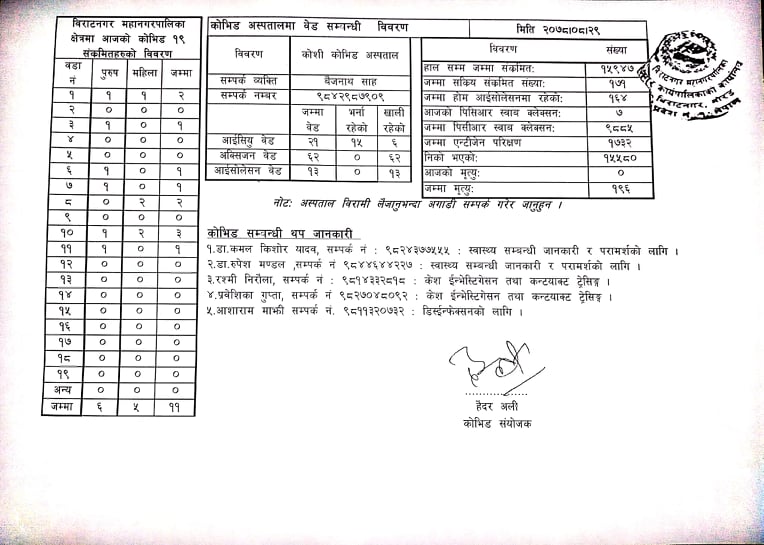 विराटनगर महानगरपालिका
क्षेत्रमा आजको कोभिड १९
संक्रमितहरुको विवरण
वडा नं पुरुष महिला जम्मा
१ १ १ २
२ ० ० ०
३ १ ० १
४ ० ० ०
५ ० ० ०
६ १ ० १
७ १ ० १
८ ० २ २
९ ० ० ०
१० १ २ ३
११ १ ० १
१२ ० ० ०
१३ ० ० ०
१४ ० ० ०
१५ ० ० ०
१६ ० ० ०
१७ ० ० ०
१८ ० ० ०
१९ ० ० ०
अन्य ० ० ०
जम्मा ६ ५ ११
कोभिड अस्पतालमा बेड सम्वन्धी विवरण
मिति २०७८।०८।२९
विवरण कोशी कोभिड अस्पताल
सम्पर्क व्यक्ति बैजनाथ साह
सम्पर्क नम्बर ९८४२९८७९०९
जम्मा बेड भर्ना रहेको खाली रहेको
आईसियु बेड २१ १५ ६
अक्सिजन बेड ६२ ० ६२
आईसोलेसन बेड १३ ० १३
विवरण संख्या
हाल सम्म जम्मा संक्रमित: १५९४७
जम्मा सक्रिय संक्रमित संख्या: १७१
जम्मा होम आईसोलेसनमा रहेको: १६४
आजको पिसिआर स्वाब क्लेक्सन: ७
जम्मा पिसीआर स्वाब क्लेक्सन: ९८८५
जम्मा एन्टीजेन परिक्षण १७३२
निको भएको: १५५८०
आजको मृत्यु: ०
जम्मा मृत्यु: १९६
नोट: अस्पताल विरामी लैजानुभन्दा अगाडी सम्पर्क गरेर जानुहुन ।
कोभिड सम्वन्धी थप जानकारी
१.डा.कमल किशोर यादव, सम्पर्क नं : ९८२४३७७५५५ : स्वास्थ्य सम्बन्धी जानकारी र परामर्शको लागि ।
२.डा.रुपेश मण्डल ,सम्पर्क नं ९८४४६४४२२७ : स्वास्थ्य सम्बन्धी जानकारी र परामर्शको लागि ।
३.रश्मी निरौला, सम्पर्क नं : ९८१४३३२८१८ : केश ईन्भेस्टिगेसन तथा कन्टयाक्ट ट्रेसिङ्ग ।
४.प्रवेशिका गुप्ता, सम्पर्क नं ९८२७०४८०९२ : केश ईन्भेस्टिगेसन तथा कन्टयाक्ट ट्रेसिङ्ग ।
५.आशाराम माझी सम्पर्क नं. ९८११३२०७३२ : डिस्ईन्फेक्सनको लागि ।
हैदर अली
कोभिड संयोजक